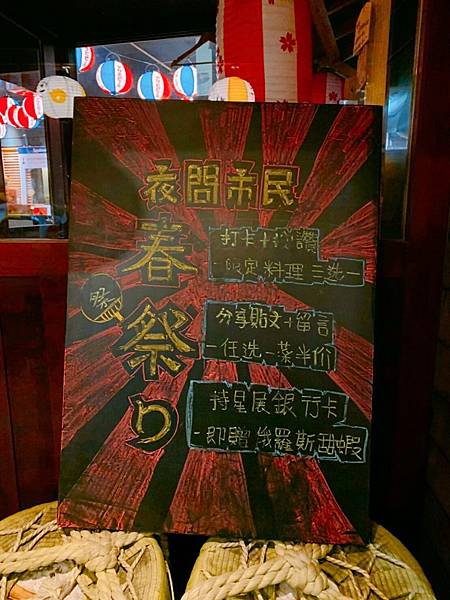 夜問市民
春祭り
祭
打卡+按讚
-限定料理 三选一
分享貼文+留言
-任选一菜半价
持星展銀行卡
-即贈 俄羅斯甜蝦